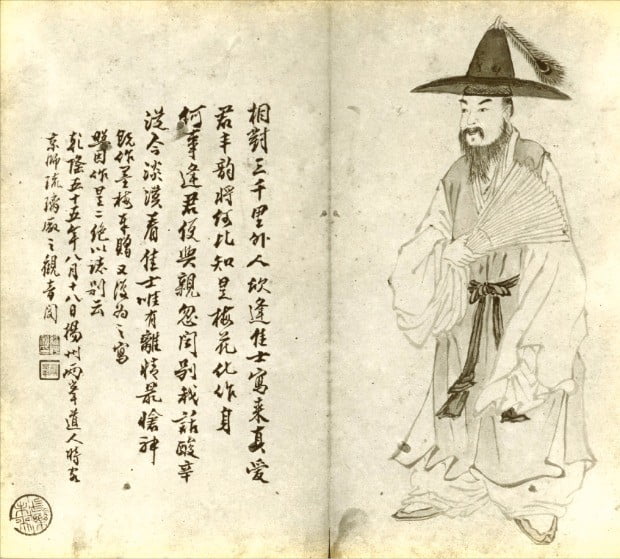 相對三千里外人欣逢佳士寫来真愛
君丰韵將何比知是梅花化作身
何事逢君便與親忽聞別我話酸辛
從今淡漠看佳士唯有離情最愴神
既作墨梅奉贈又復為之寫
照因作是二絶以誌別云
乾隆五十五年八月十八日揚州兩峯道人時客
京師琉璃廠之觀音閣